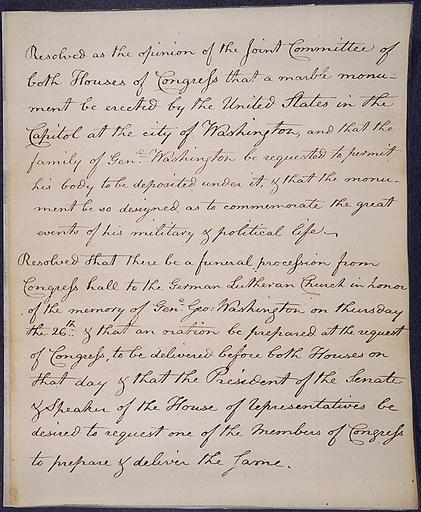 Resolved as the opinion of the Joint Committee of
both Houses of Congress that a marble monu-
ment be erected by the United States in the
Capitol at the city of Washington, and that the
family of Genl. Washington be requested to permit
his body to be deposited under it, & that the monu-
ment be so designed as to commemorate the great
events of his military & political life.
Resolved that there be a funeral procession from
Congress hall to the German Lutheran Church in honor
of the memory of Genl. Geo. Washington on thursday
the 26th. & that an oration be prepared at the request
of Congress, to be delivered before both Houses on
that day & that the President of the Senate
& Speaker of the House of representatives be
desired to request one of the Members of Congress
to prepare & deliver the same.